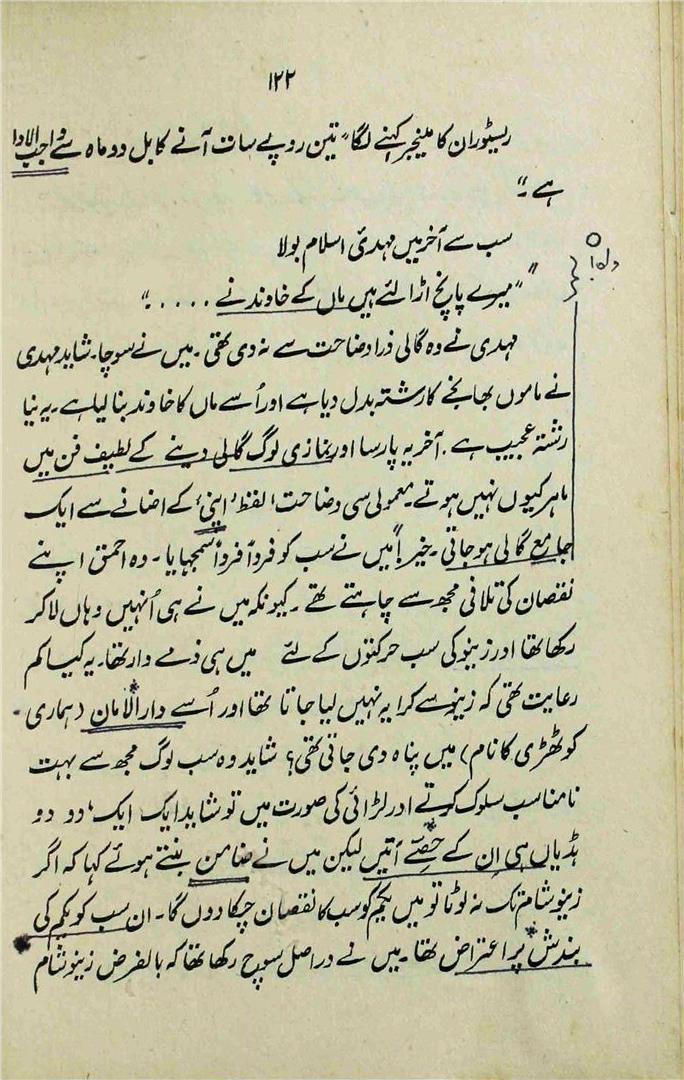 ۱۲۲
ریسٹوران کا مینجر کہنے لگا "تین روپے سات آنے کا بل دو ماہ سے واجب الادا
ہے۔"
سب سے آخر میں مہدی اسلام بولا
"میرے پانچ اڑا لئے ہیں ماں کے خاوند نے ....۔"
مہدی نے وہ گالی ذرا وضاحت سے نہ دی تھی۔ میں نے سوچا۔ شاید مہدی
نے ماموں بھانجے کا رشتہ بدل دیا ہے اور اُسے ماں کا خاوند بنا لیا ہے۔ یہ نیا
رشتہ عجیب ہے۔ آخر یہ پارسا اور نمازی لوگ گالی دینے کے لطیف فن میں
ماہر کیوں نہیں ہوتے۔ معمولی سی وضاحت لفظ 'اپنی' کے اضافے سے ایک
جامع گالی ہو جاتی۔ خیر! میں نے سب کو فرداً فرداً سمجھایا۔ وہ احمق اپنے
نقصان کی تلافی مجھ سے چاہتے تھے۔ کیونکہ میں نے ہی اُنہیں وہاں لا کر
رکھا تھا اور زینو کی سب حرکتوں کے لئے میں ہی ذمے دار تھا۔ یہ کیا کم
رعایت تھی کہ زینو سے کرایہ نہیں لیا جاتا تھا اور اُسے دارالامان (ہماری
کوٹھڑی کا نام) میں پناہ دی جاتی تھی؟ شاید وہ سب لوگ مجھ سے بہت
نامناسب سلوک کرتے اور لڑائی کی صورت میں تو شاید ایک ایک' دو دو
ہڈیاں ہی اِن کے حِصّے آتیں لیکن میں نے ضامن بنتے ہوئے کہا کہ اگر
زینو شام تک نہ لوٹا تو میں یکم کو سب کا نقصان چکا دوں گا۔ ان سب کو یکم کی
بندش پر اعتراض تھا۔ میں نے دراصل سوچ رکھا تھا کہ بالفرض زینو شام